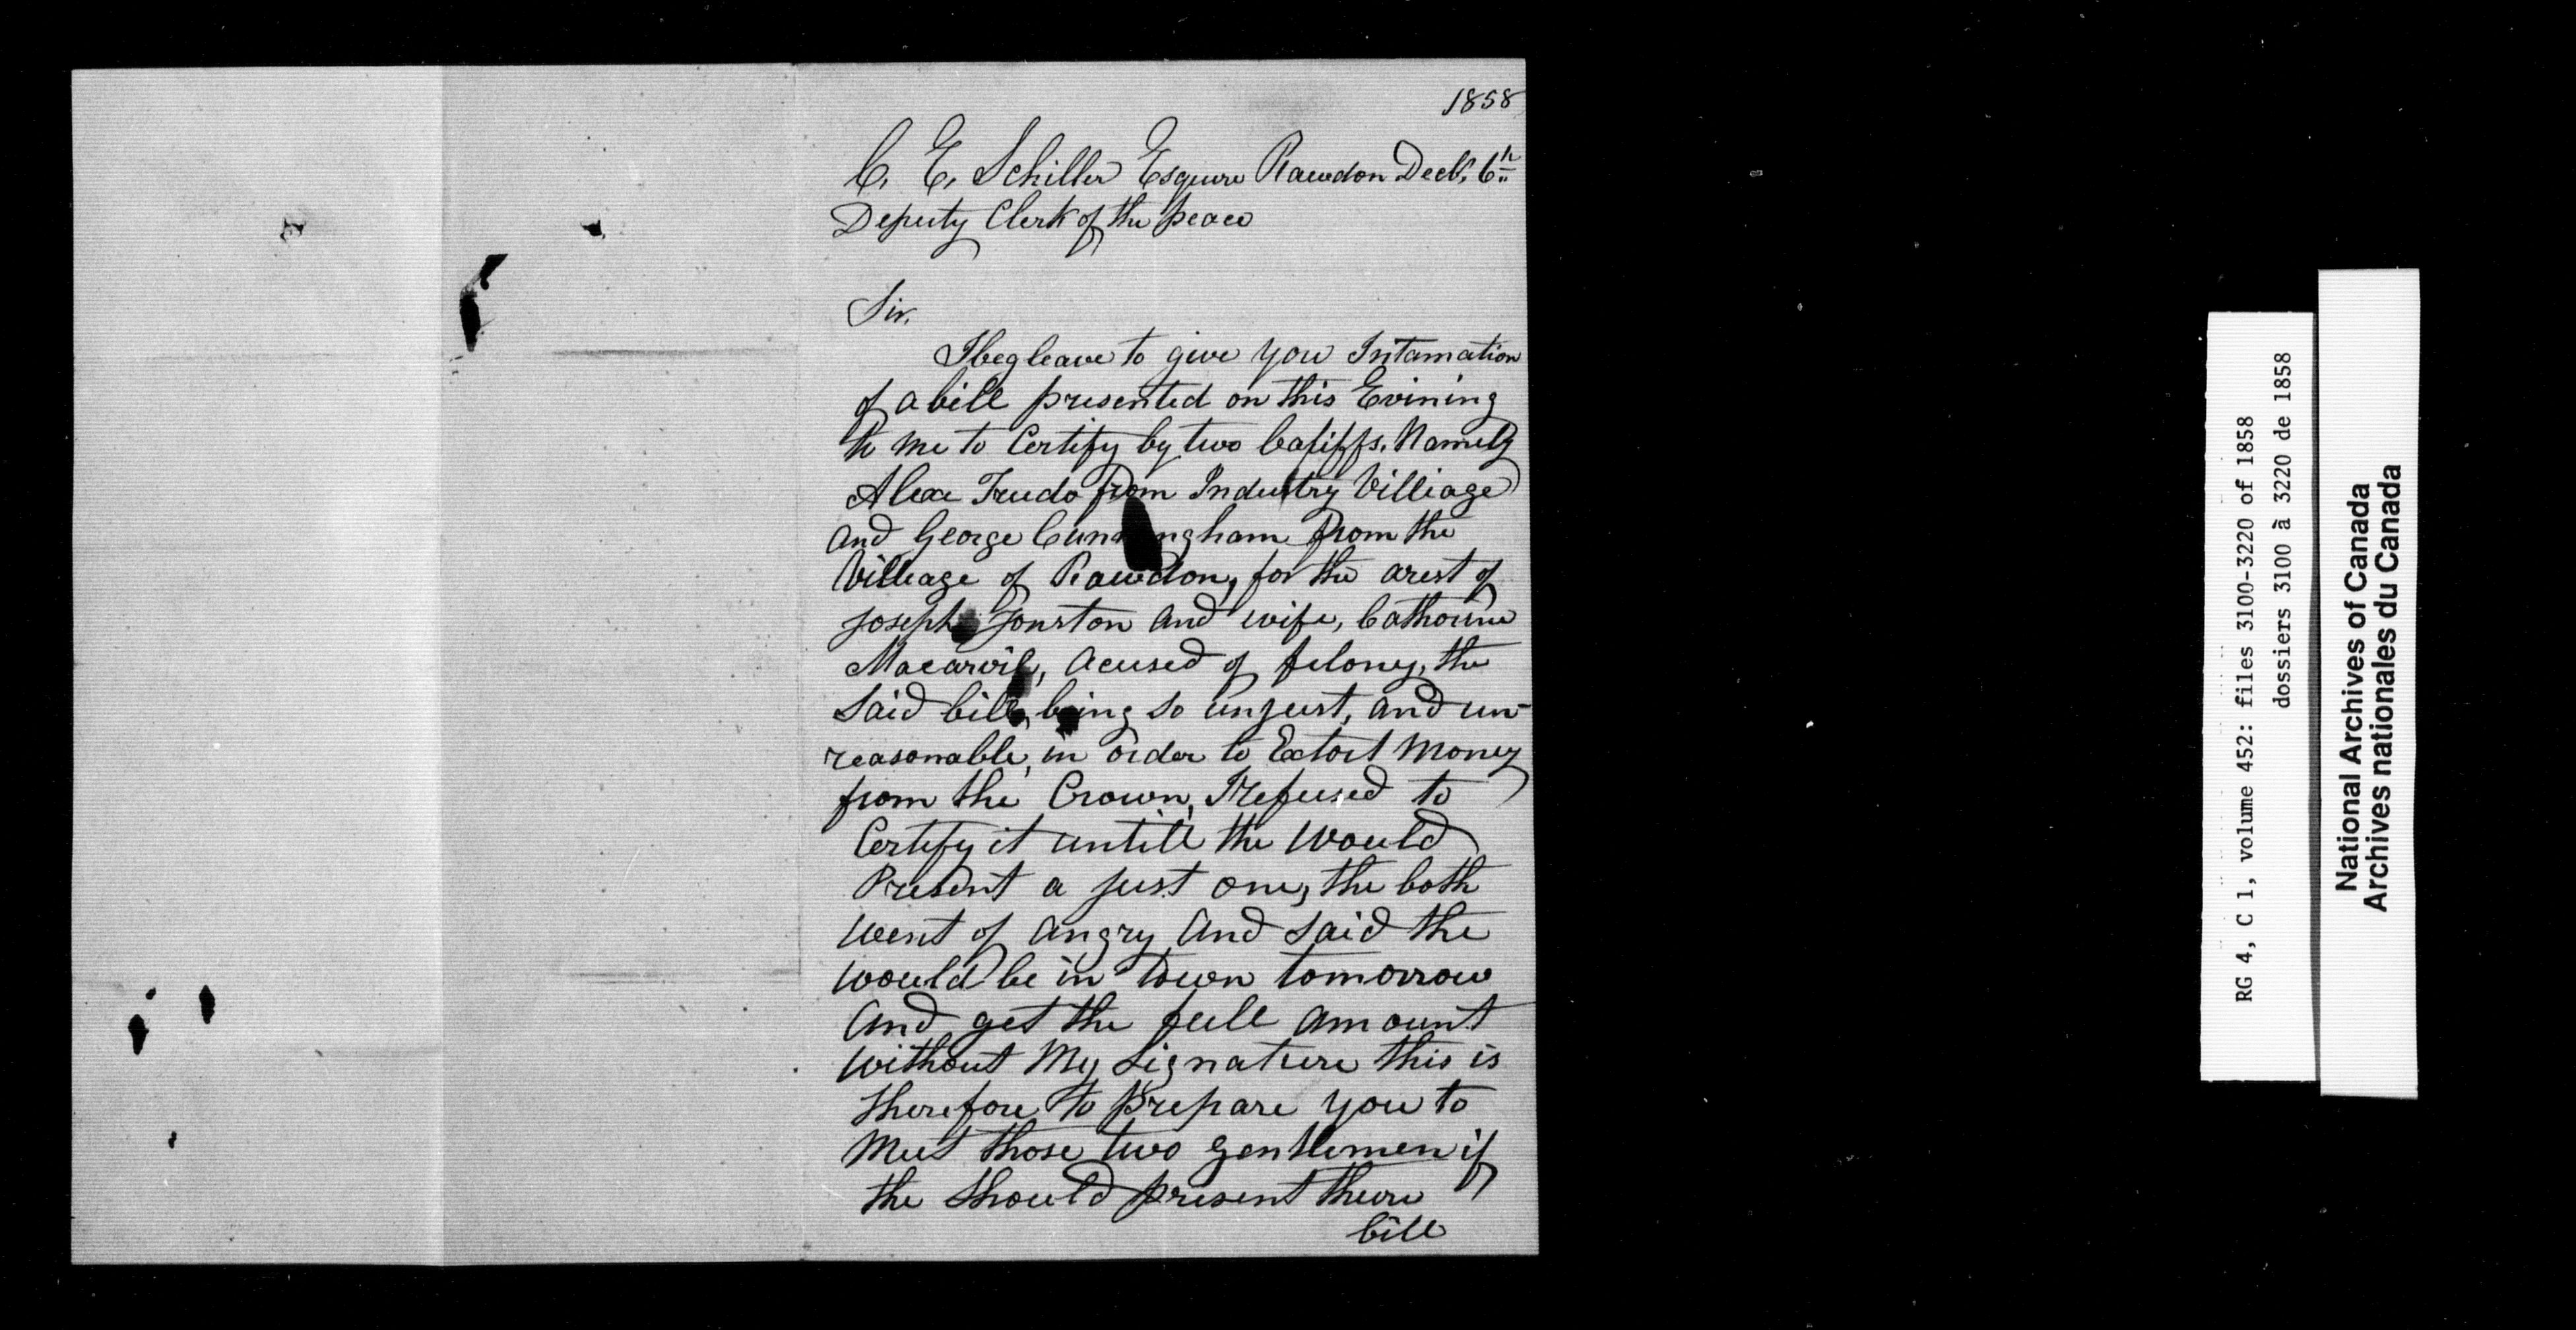 1858
C. E. Schiller Esquire Rawdon Decb. 6th
Deputy Clerk of the peace
Sir.
I beg leave to give you Intamation
of a bill presented on this Evining
to me to Certify by two bafiffs. Namely
Alexe Trudo from Industry Villiage
and George Cunningham from the
Villeage of Rawdon, for the arest of
Joseph Jonston and wife, Cathorine
Macarvil, acused of felony, the
Said bill, being so unjust, and un-
reasonable, in order to Extort Money
from the Crown, I refused to
Certify it untill the Would
Present a just one, the both
went of angry And Said the
would be in town tomorrow
And get the full amount
without My Signature this is
therefore to prepare you to
Meet those two gentlemen if
the Should present there
bill
RG 4, C 1, volume 452: files 3100-3220 of 1858
dossiers 3100 à 3220 de 1858
National Archives of Canada
Archives nationales du Canada